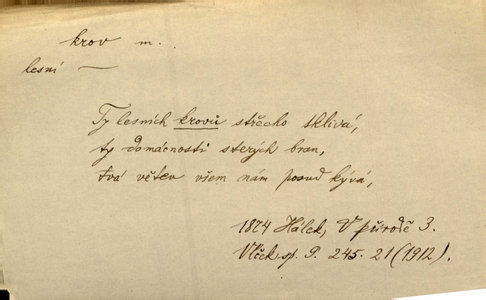 krov m.
lesní —
Ty lesních krovů střecho sklivá,
ty domácnosti sterých bran,
tvá větev všem nám posud kývá,
1874 Hálek, V přírodě 3.
Vlček, sp. P. 245. 21 (1912).